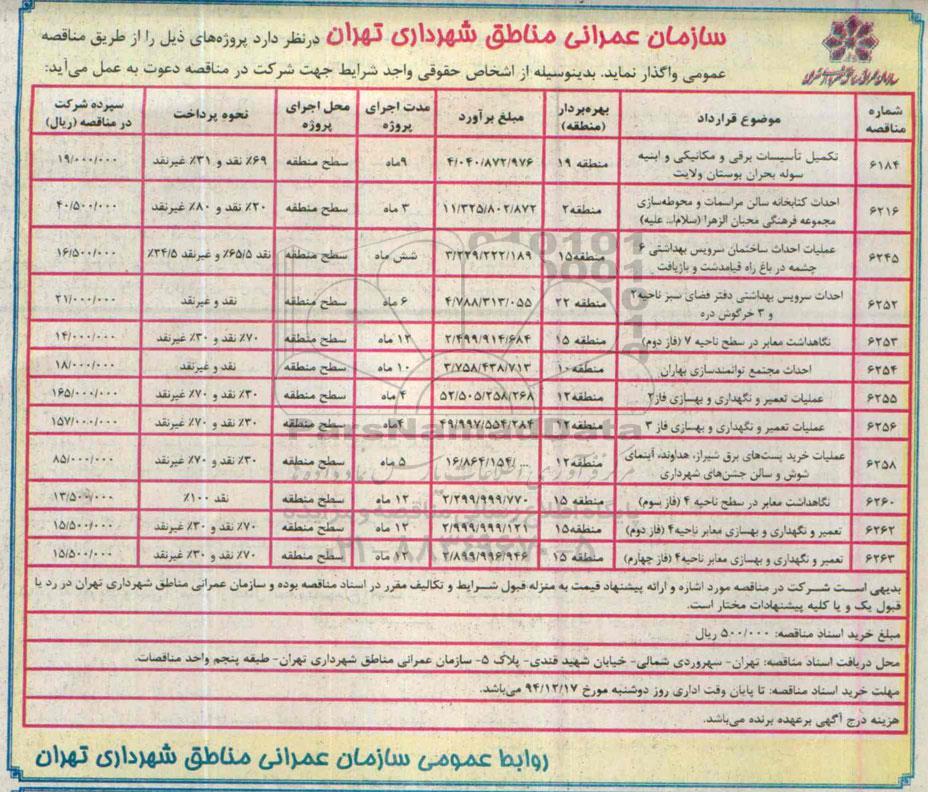 سازمان عمرانی مناطق شهرداری تهران درنظر دارد پروژه‌های ذیل را از طریق مناقصه
عمومی واگذار نماید. بدینوسیله از اشخاص حقوقی واجد شرایط جهت شرکت در مناقصه دعوت به عمل می‌آید:
شماره مناقصه | موضوع قرارداد | بهره‌بردار (منطقه) | مبلغ برآورد | مدت اجرای پروژه | محل اجرای پروژه | نحوه پرداخت | سپرده شرکت در مناقصه (ریال)
۶۱۸۴ | تکمیل تأسیسات برقی و مکانیکی و ابنیه سوله بحران بوستان ولایت | منطقه ۱۹ | ۴/۰۴۰/۸۷۲/۹۷۶ | ۹ماه | سطح منطقه | ۶۹٪ نقد و ۳۱٪ غیرنقد | ۱۹/۰۰۰/۰۰۰
۶۲۱۶ | احداث کتابخانه سالن مراسمات و محوطه‌سازی مجموعه فرهنگی محبان الزهرا (سلام‌ا... علیه) | منطقه۲ | ۱۱/۳۲۵/۸۰۲/۸۷۲ | ۳ ماه | سطح منطقه | ۲۰٪ نقد و ۸۰٪ غیرنقد | ۴۰/۵۰۰/۰۰۰
۶۲۴۵ | عملیات احداث ساختمان سرویس بهداشتی ۶ چشمه در باغ راه فیامدشت و بازیافت | منطقه۱۵ | ۳/۲۲۹/۲۲۲/۱۸۹ | شش ماه | سطح منطقه | نقد ۶۵/۵٪ و غیرنقد ۳۴/۵٪ | ۱۶/۵۰۰/۰۰۰
۶۲۵۲ | احداث سرویس بهداشتی دفتر فضای سبز ناحیه۲ و ۳ خرگوش دره | منطقه ۲۲ | ۴/۷۸۸/۳۱۳/۰۵۵ | ۶ ماه | سطح منطقه | نقد و غیرنقد | ۲۱/۰۰۰/۰۰۰
۶۲۵۳ | نگاهداشت معابر در سطح ناحیه ۷ (فاز دوم) | منطقه ۱۵ | ۲/۴۹۹/۹۱۴/۶۸۴ | ۱۲ ماه | سطح منطقه | ۷۰٪ نقد و ۳۰٪ غیرنقد | ۱۴/۰۰۰/۰۰۰
۶۲۵۴ | احداث مجتمع توانمندسازی بهاران | منطقه۱۰ | ۳/۷۵۸/۴۳۸/۷۱۳ | ۱۰ ماه | سطح منطقه | نقد و غیرنقد | ۱۸/۰۰۰/۰۰۰
۶۲۵۵ | عملیات تعمیر و نگهداری و بهسازی فاز۲ | منطقه۱۲ | ۵۲/۵۰۵/۲۵۸/۲۶۸ | ۴ ماه | سطح منطقه | ۳۰٪ نقد و ۷۰٪ غیرنقد | ۱۶۵/۰۰۰/۰۰۰
۶۲۵۶ | عملیات تعمیر و نگهداری و بهسازی فاز ۳ | منطقه۱۲ | ۴۹/۹۹۷/۵۵۴/۲۸۴ | ۴ماه | سطح منطقه | ۳۰٪ نقد و ۷۰٪ غیرنقد | ۱۵۷/۰۰۰/۰۰۰
۶۲۵۸ | عملیات خرید پست‌های برق شیراز، هداوند، آبنمای شوش و سالن جشن‌های شهرداری | منطقه۱۲ | ۱۶/۸۶۴/۱۵۴/... | ۵ ماه | سطح منطقه | ۳۰٪ نقد و ۷۰٪ غیرنقد | ۸۵/۰۰۰/۰۰۰
۶۲۶۰ | نگاهداشت معابر در سطح ناحیه ۴ (فاز سوم) | منطقه ۱۵ | ۲/۲۹۹/۹۹۹/۷۷۰ | ۱۲ ماه | سطح منطقه | نقد ۱۰۰٪ | ۱۳/۵۰۰/۰۰۰
۶۲۶۲ | تعمیر و نگهداری و بهسازی معابر ناحیه۴ (فاز دوم) | منطقه۱۵ | ۲/۹۹۹/۹۹۹/۱۲۱ | ۱۲ ماه | سطح منطقه | ۷۰٪ نقد و ۳۰٪ غیرنقد | ۱۵/۵۰۰/۰۰۰
۶۲۶۳ | تعمیر و نگهداری و بهسازی معابر ناحیه۴ (فاز چهارم) | منطقه ۱۵ | ۲/۸۹۹/۹۹۶/۹۴۶ | ۱۲ ماه | سطح منطقه | ۷۰٪ نقد و ۳۰٪ غیرنقد | ۱۵/۵۰۰/۰۰۰
بدیهی است شرکت در مناقصه مورد اشاره و ارائه پیشنهاد قیمت به منزله قبول شرایط و تکالیف مقرر در اسناد مناقصه بوده و سازمان عمرانی مناطق شهرداری تهران در رد یا
قبول یک و یا کلیه پیشنهادات مختار است.
مبلغ خرید اسناد مناقصه: ۵۰۰/۰۰۰ ریال
محل دریافت اسناد مناقصه: تهران- سهروردی شمالی- خیابان شهید قندی- پلاک ۵- سازمان عمرانی مناطق شهرداری تهران- طبقه پنجم واحد مناقصات.
مهلت خرید اسناد مناقصه: تا پایان وقت اداری روز دوشنبه مورخ ۹۴/۱۲/۱۷ می‌باشد.
هزینه درج آگهی برعهده برنده می‌باشد.
روابط عمومی سازمان عمرانی مناطق شهرداری تهران
ParsNamadData